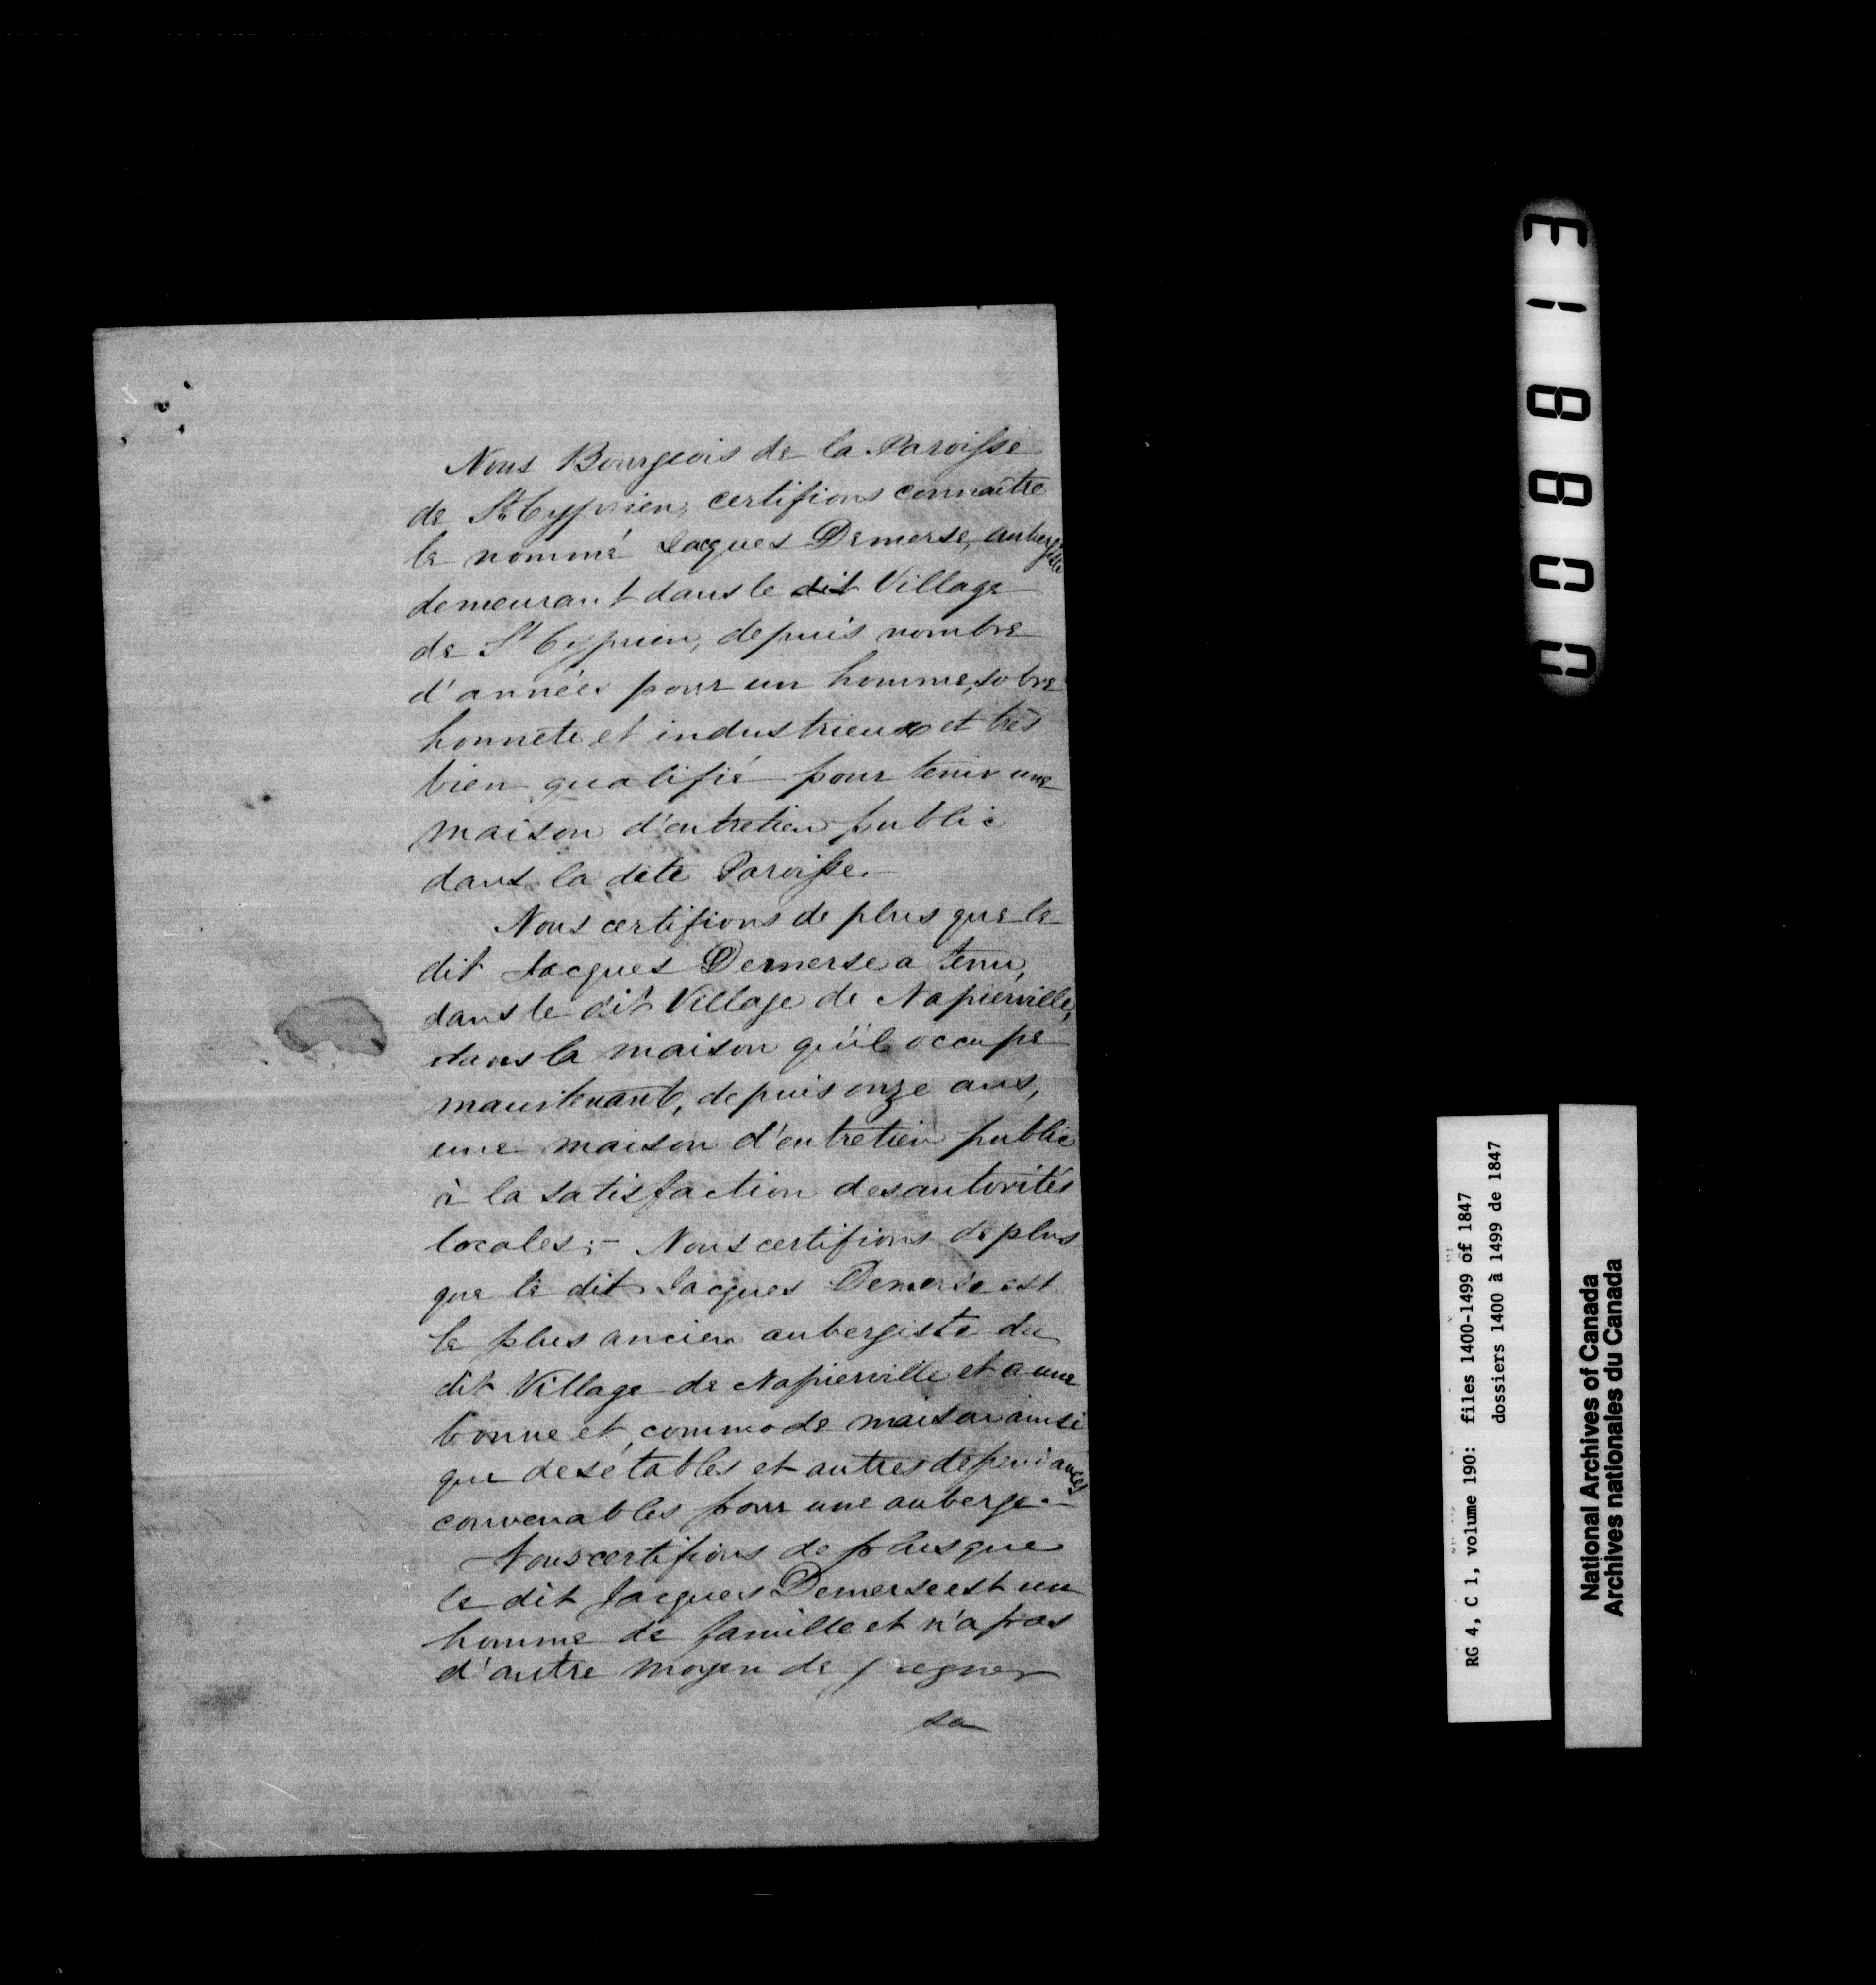 Nous Bourgeois de la Paroisse
de St Cyprien, certifions connaitre
le nommé Jacques Demerse, aubergiste
demeurant dans le dit Village
de St Cyprien, depuis nombre
d'années pour un homme, sobre
honnete et industrieux et très
bien qualifié pour tenir une
maison d'entretien public
dans la dite Paroisse.—
Nous certifions de plus que le
dit Jacques Demerse a tenu,
dans le dit Village de Napierville,
dans la maison qu'il occupe
maintenant, depuis onze ans,
une maison d'entretien public
à la satisfaction des autorités
locales;- Nous certifions de plus
que le dit Jacques Demerse est
le plus ancien aubergiste du
dit Village de Napierville et a une
bonne et commode maison ainsi
que des étables et autres dependances
convenables pour une auberge.—
Nous certifions de plus que
le dit Jacques Demerse est un
homme de famille et n'a pas
d'autre moyen de gagner
sa
008813
RG 4, C 1, volume 190: files 1400-1499 of 1847
dossiers 1400 à 1499 de 1847
National Archives of Canada
Archives nationales du Canada